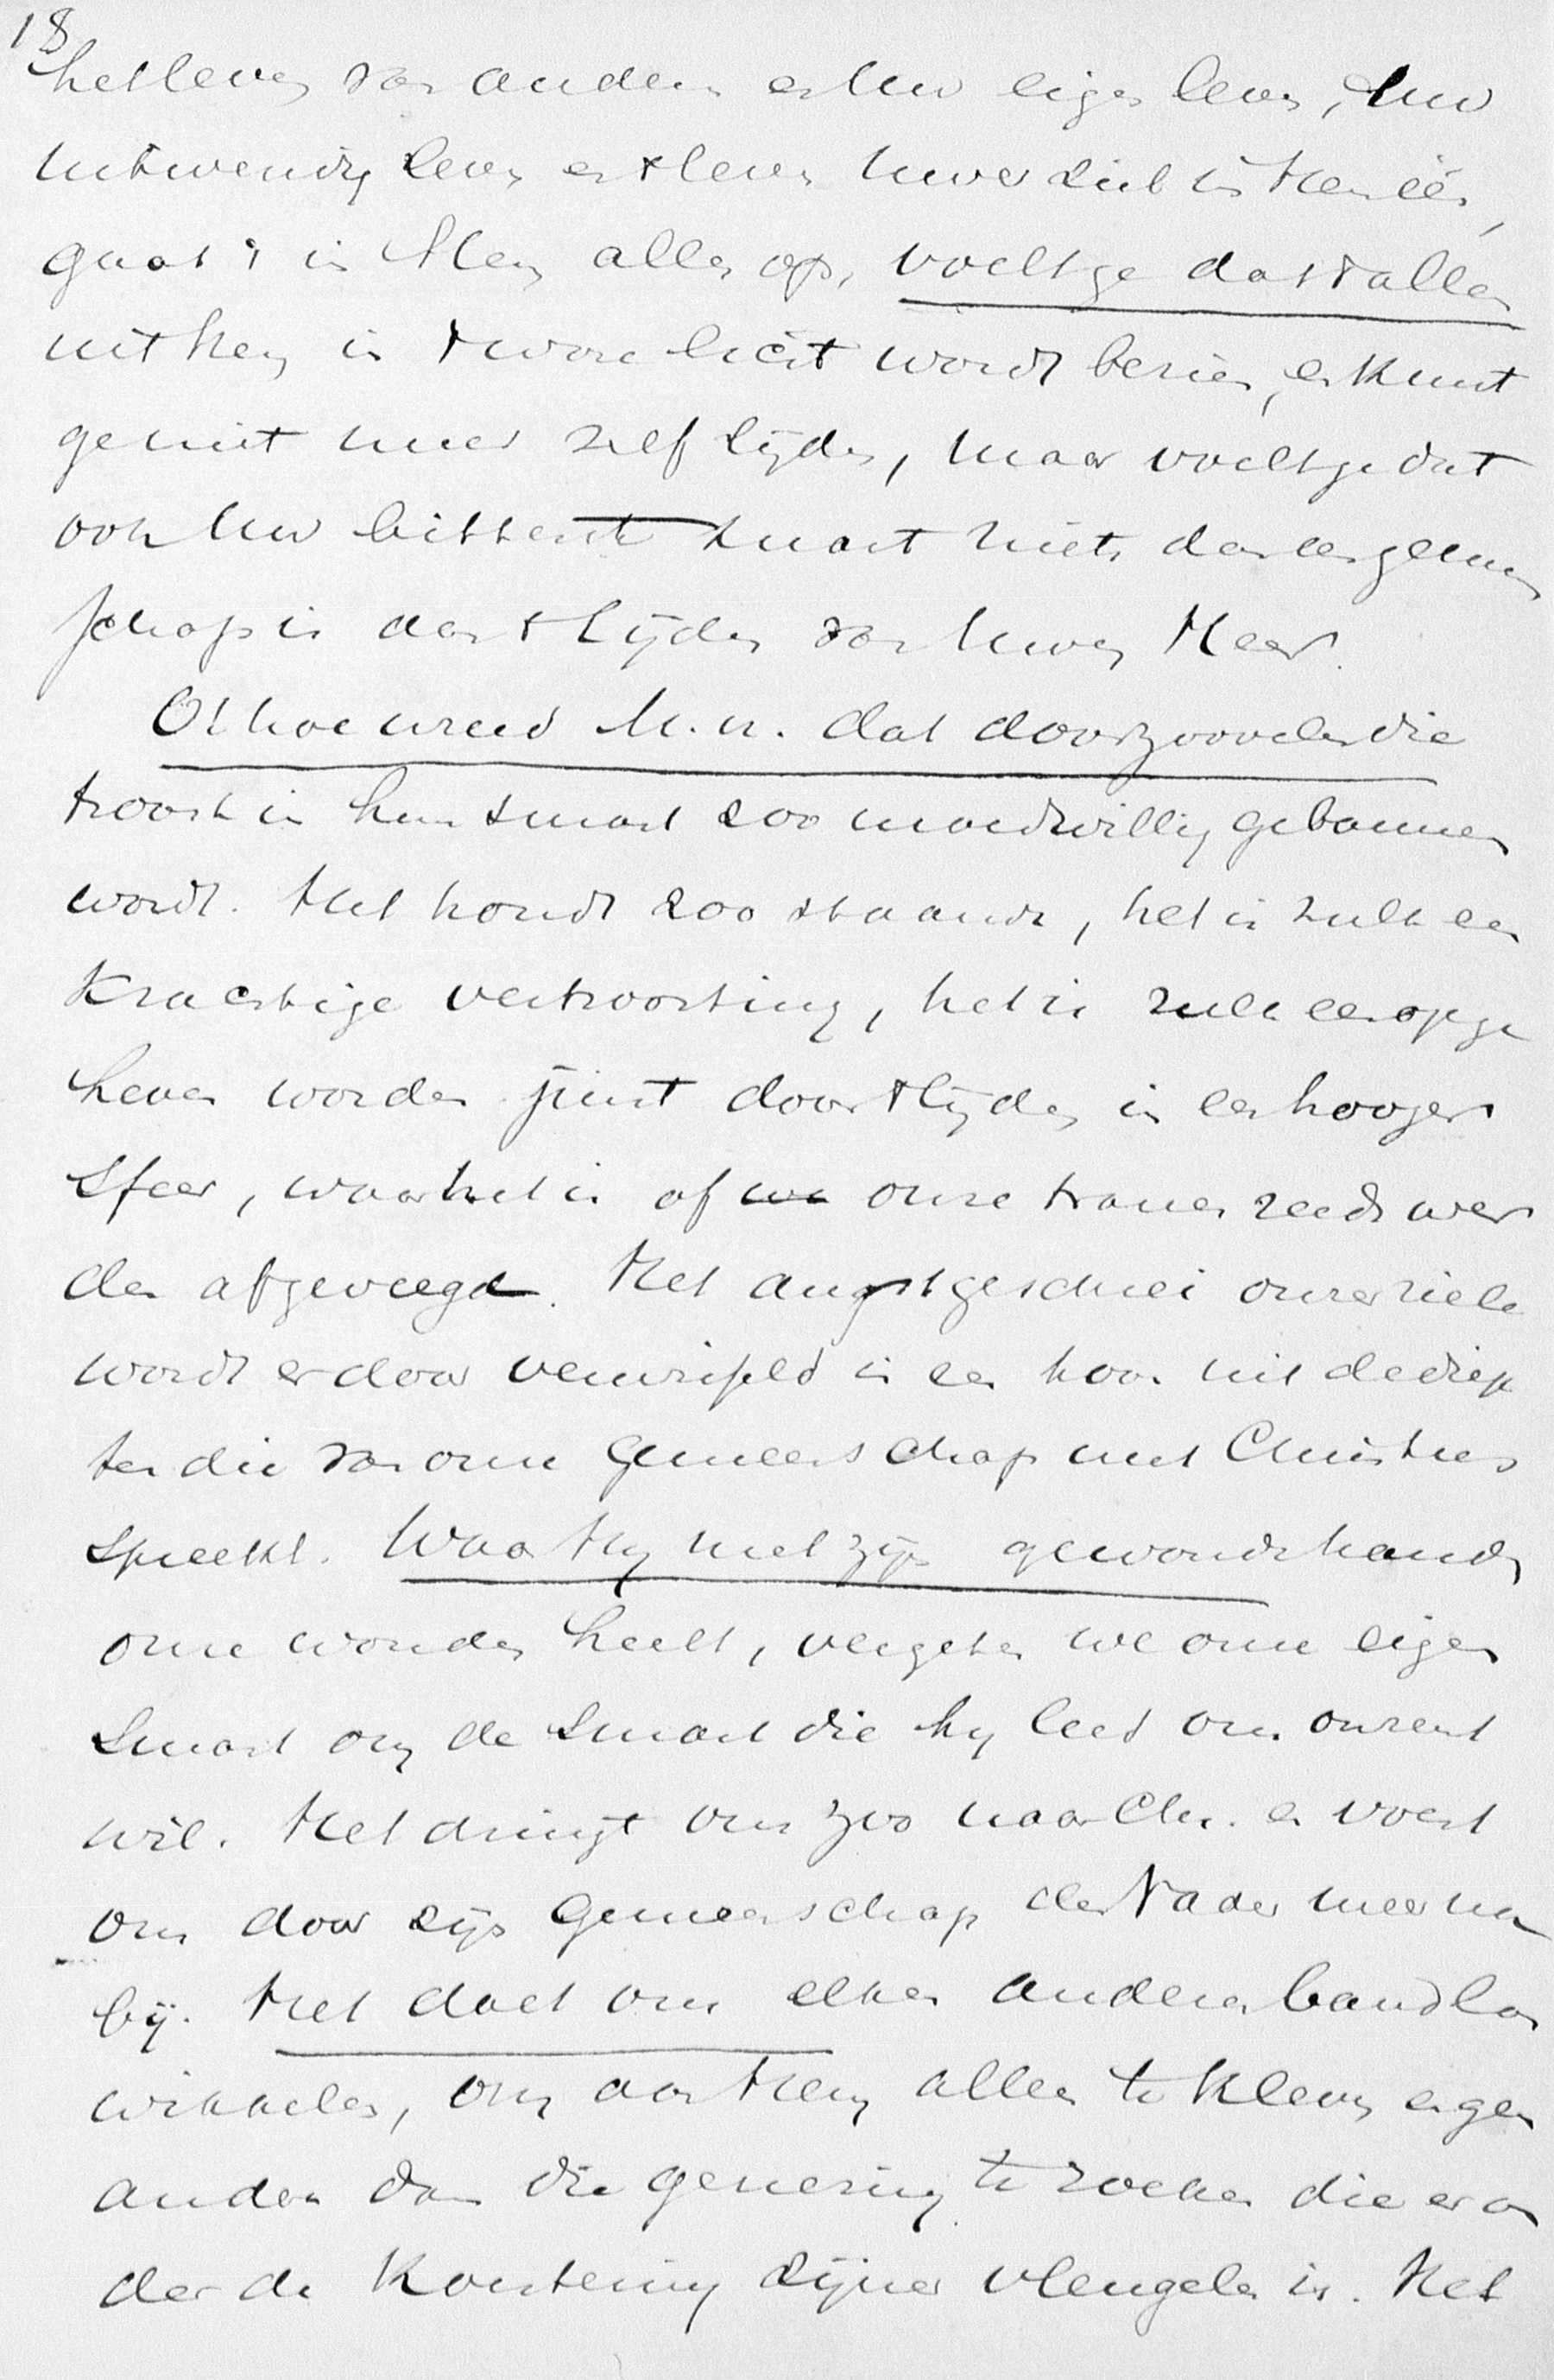 18
het leven van anderen en Uw eigen leven, Uw
uitwendig leven en 't leven Uwer ziel is Hem één,
gaat 't in Hem alles op, voelt ge dat 't alles
uit hem in 't ware licht wordt bezien, en kunt
ge niet meer zelf lijden, maar voelt ge dat
ook Uw bitterste smart niets dan een gemeen
schap is aan 't Lijden van Uwen Heer.
O! hoe wreed M. H. dat door zoovelen die
troost in hun smart zoo moedwillig gebannen
wordt. Het houdt zoo staande, het is zulk een
Krachtige vertroosting, het is zulk een opge
heven worden juist door 't lijden in een hooger
sfeer, waar het is of we onze tranen reeds wer
den afgeveegd. Het angstgeschrei onzer ziele
wordt er door verwisseld in een toon uit de diep
ten die van onze Gemeenschap met Christus
spreekt. Waar Hij met zijn gewonde handen
onze wonden heelt, vergeten we onze eigen
Smart om de Smart die hij leed om onzent
wil. Het dringt ons zoo naar Chr. en voert
ons door zijn Gemeenschap den Vader meer na
bij. Het doet ons elken anderen band los
wikkelen, om aan Hem alleen te Kleven en geen
andere dan die genezing te zoeken die er on
der de Koestering Zijner vleugelen is. Het